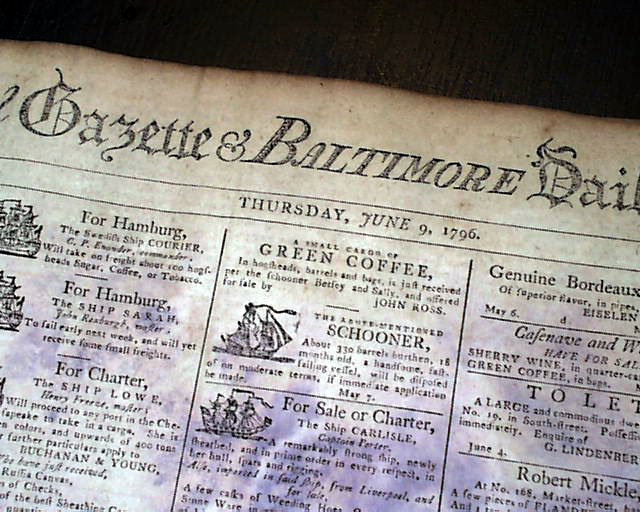 Gazette & BALTIMORE Dail
THURSDAY, JUNE 9, 1796.
For Hamburg,
The Swedish Ship COURIER,
commander.
Will take on freight about 100 hogs-
heads Sugar, Coffee, or Tobacco.
For Hamburg,
The SHIP SARAH,
master:
To sail early next week, and will yet
receive some small freights.
For Charter,
The SHIP LOWE,
master;
Will proceed to any port in the Che-
sapeake to take in a cargo. She is
colors, and upwards of 400 tons
farther particulars apply to
BUCHANAN & YOUNG,
have just received,
Russia Canvas,
of Checks,
of the best Sheathing
A SMALL CARGO OF
GREEN COFFEE,
In hogsheads, barrels and bags, is just received
per the schooner Betsey and Sally, and offered
for sale by
JOHN ROSS.
THE ABOVE-MENTIONED
SCHOONER,
About 330 barrels burthen, 18
months old, a handsome, fast-
sailing vessel, will be disposed
of on moderate terms, if immediate application
is made.
May 7.
For Sale or Charter,
The Ship CARLISLE,
Captain
A remarkably strong ship, newly
sheathed, and in prime order in every respect, in
her hull, spars and rigging.
Also, imported in said ship, from Liverpool, and
for sale,
A few casks of Weeding Hoes,
Genuine Bordeaux
Of superior flavor, in pipes
May 6. d EISELEN
Casenave and W
HAVE FOR SAL
SHERRY WINE, in quarter-
GREEN COFFEE, in bags.
TO LET
A LARGE and commodious
No. 19, in South-street.
immediately. Enquire of
G. LINDENBER
June 4.
Robert Mickle
At No. 168, Market-street,
A few pieces of FLANDE